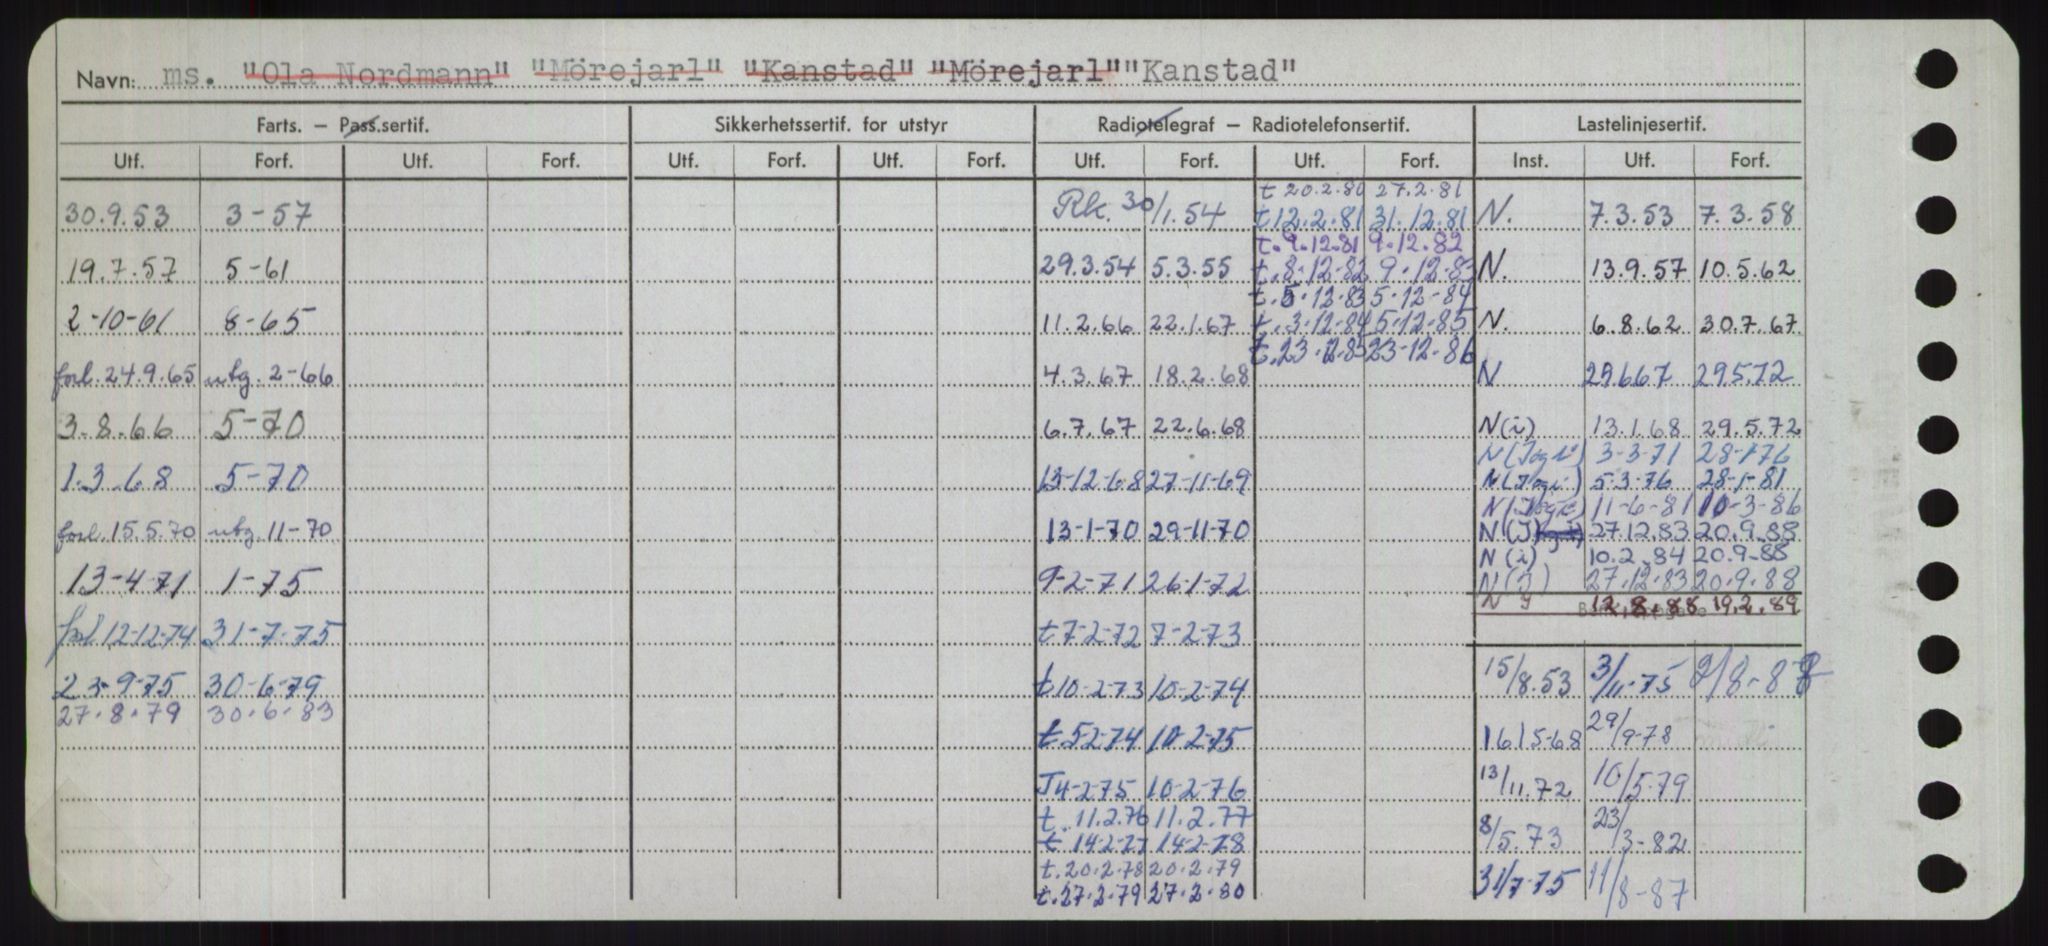 Navn: ms. "Ola Nordmann" "Mörejarl" "Kanstad" "Mörejarl" "Kanstad"
Farts. — Pass.sertif. Sikkerhetssertif. for utstyr Radiotelegraf — Radiotelefonsertif. Lastelinjesertif.
Utf. Forf. Utf. Forf. Utf. Forf. Utf. Forf. Utf. Forf. Utf. Forf. Inst. Utf. Forf.
t 20.2.80 27.2.81
30.9.53 3-57 Rk. 30/1.54 t 12.2.81 31.12.81 N. 7.3.53 7.3.58
t. 9.12.81 9.12.82
19.7.57 5-61 29.3.54 5.3.55 t. 8.12-82 9.12.83 N. 13.9.57 10.5.62
t. 5.12.83 5-12-84
2-10-61 8-65 11.2.66 22.1.67 t. 3-12-84 5-12-85 N. 6.8.62 30.7.67
t. 23.12.85 23-12-86
forl. 24.9.65 utg. 2-66 4.3.67 18.2.68 N 29.6.67 29.5.72
3-8.66 5-70 6.7.67 22.6.68 N(i) 13.1.68 29.5.72
N(J og i) 3-3-71 28-1-76
1.3.68 5-70 13-12-68 27-11-69 N(J og i) 5-3-76 28-1-81
N(J og i) 11-6-81 10-3-86
forl. 15.5.70 utg. 11-70 13-1-70 29-11-70 N(J) 27.12.83 20.9.88
N(i) 10.2.84 20.9.88
13-4-71 1-75 9-2-71 26-1-72 N(J) 27.12.83 20.9.88
N J 12.8.88 19.2.89
forl. 12-12-74 31-7-75 t 7-2-72 7-2-73
23-9-75 30-6-79 t 10-2-73 10-2-74 15/8.53 3/11-75 9/8-88
27.8.79 30.6.83
t 5-2-74 10-2-75 16/5-68 29/9-78
J 4-2-75 10-2-76 13/11.72 10/5-79
t. 11.2.76 11.2.77
t 14-2-77 14-2-78 8/5.73 23/3-82
t. 20.2.78 20.2.79
t. 27.2.79 27.2.80 31/7-75 11/8-87